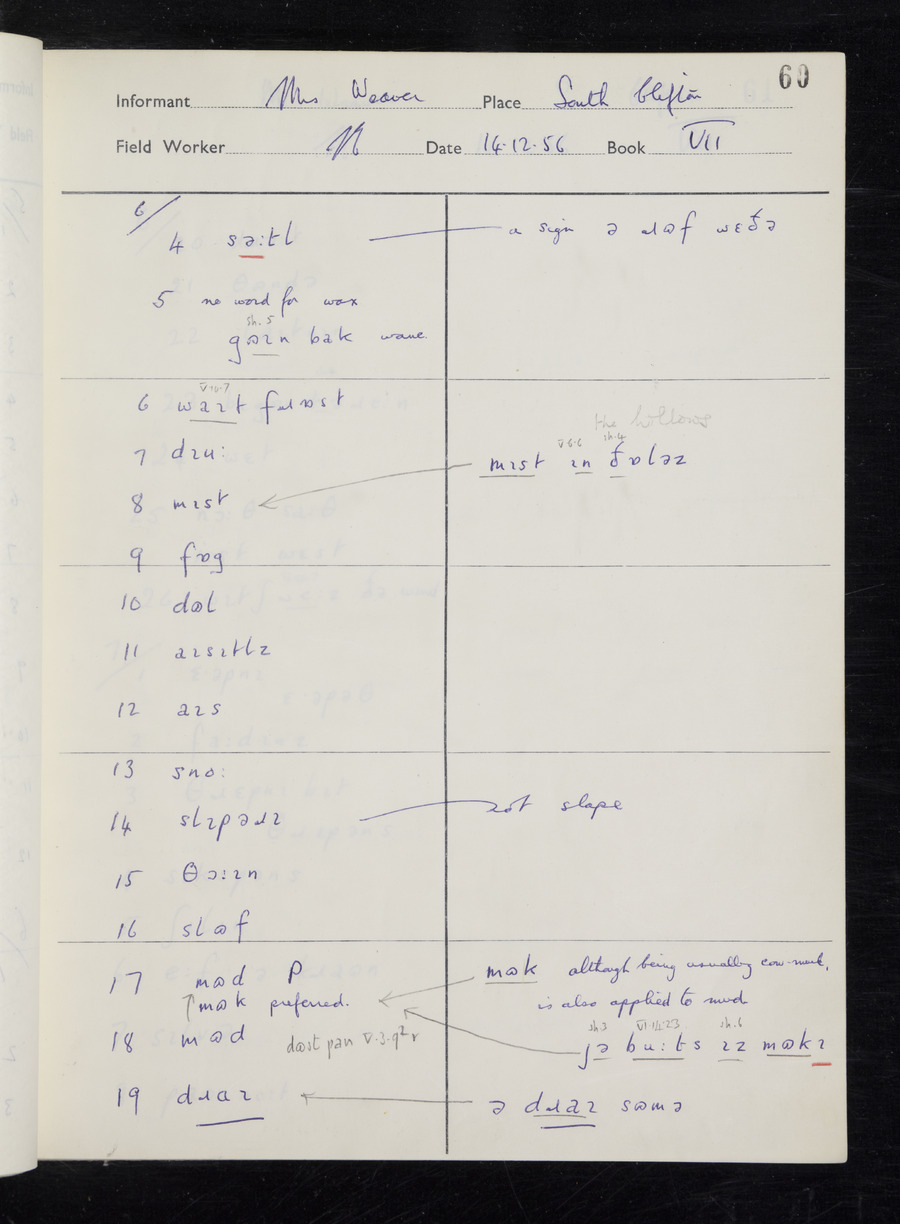 60
Informant Mrs Weaver Place South Clifton
Field Worker Date 14.12.56 Book VII
6/
4 sə:tl a sign ə ɹɷf wɛðə
5 no word for wax
sh. 5
gɷɪn bak wane.
V.10.7
6 waɪt fɹɒst
7 dɪu:
the hollows
V.6.6 sh.4
8 mɪst mɪst ɪn ð ɒləz
9 fɒg
10 dɷl
11 aɪsɪtlz
12 aɪs
13 sno:
14 slɪpəɹɪ not slape
15 θɔ:ɪn
16 slɷf
17 mɷd P mɷk although being usually cow-muck,
↑mɷk preferred. is also applied to mud
sh.3 VI.14.23 sh.6
18 mɷd dɷst pan V.3.9² r jə bu:ts ɪz mɷkɪ
19 dɹaɪ ə dɹaɪ sɷmə